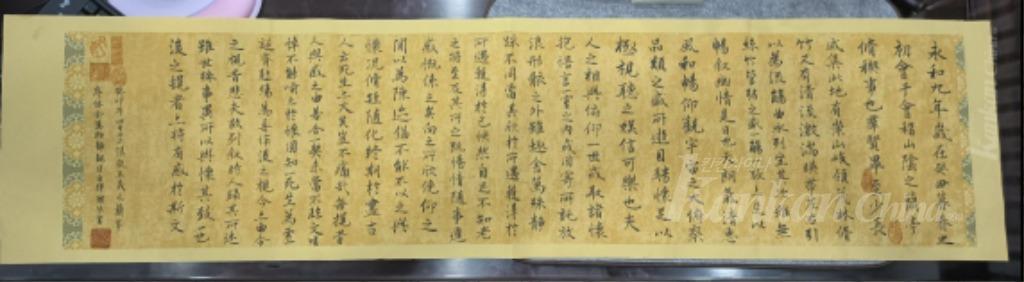 永和九年歲在癸丑暮春之
初會于會稽山陰之蘭亭
脩稧事也羣賢畢至少長
咸集此地有崇山峻領茂林脩
竹又有清流激湍暎帶左右引
以為流觴曲水列坐其次雖無
絲竹管弦之盛一觴一詠亦足以
暢敘幽情是日也天朗氣清惠
風和暢仰觀宇宙之大俯察
品類之盛所以遊目騁懷足以
極視聽之娛信可樂也夫
人之相與俯仰一世或取諸懷
抱悟言一室之內或因寄所託放
浪形骸之外雖趣舍萬殊靜
躁不同當其欣於
所遇蹔得於己快然自足不知老
之將至及其所之既惓情隨事遷
感慨係之矣向之所欣俛仰之
間以為陳迹猶不能不以之興
懷況脩短隨化終期於盡古
人云死生亦大矣豈不痛哉每攬昔
人興感之由若合一契未嘗不臨文嗟
悼不能喻之於懷固知一死生為虛
誕齊彭殤為妄作後之視今亦由今
之視昔悲夫故列敘時人錄其所述
雖世殊事異所以興懷其致一也
後之攬者亦將有感於斯文
Kankan China